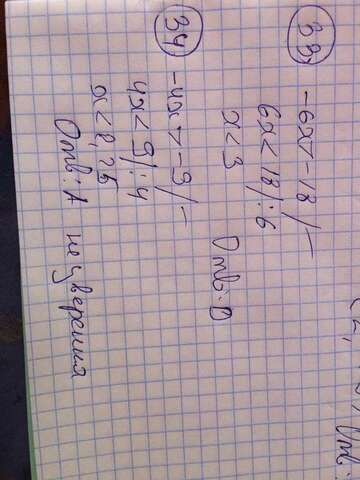 33 -6x > -18 /-
6x < 18 /:6
x < 3
Отв: D
34 -4x > -9 /-
4x < 9 /:4
x < 2,25
Отв: А не уверенна
Отв: